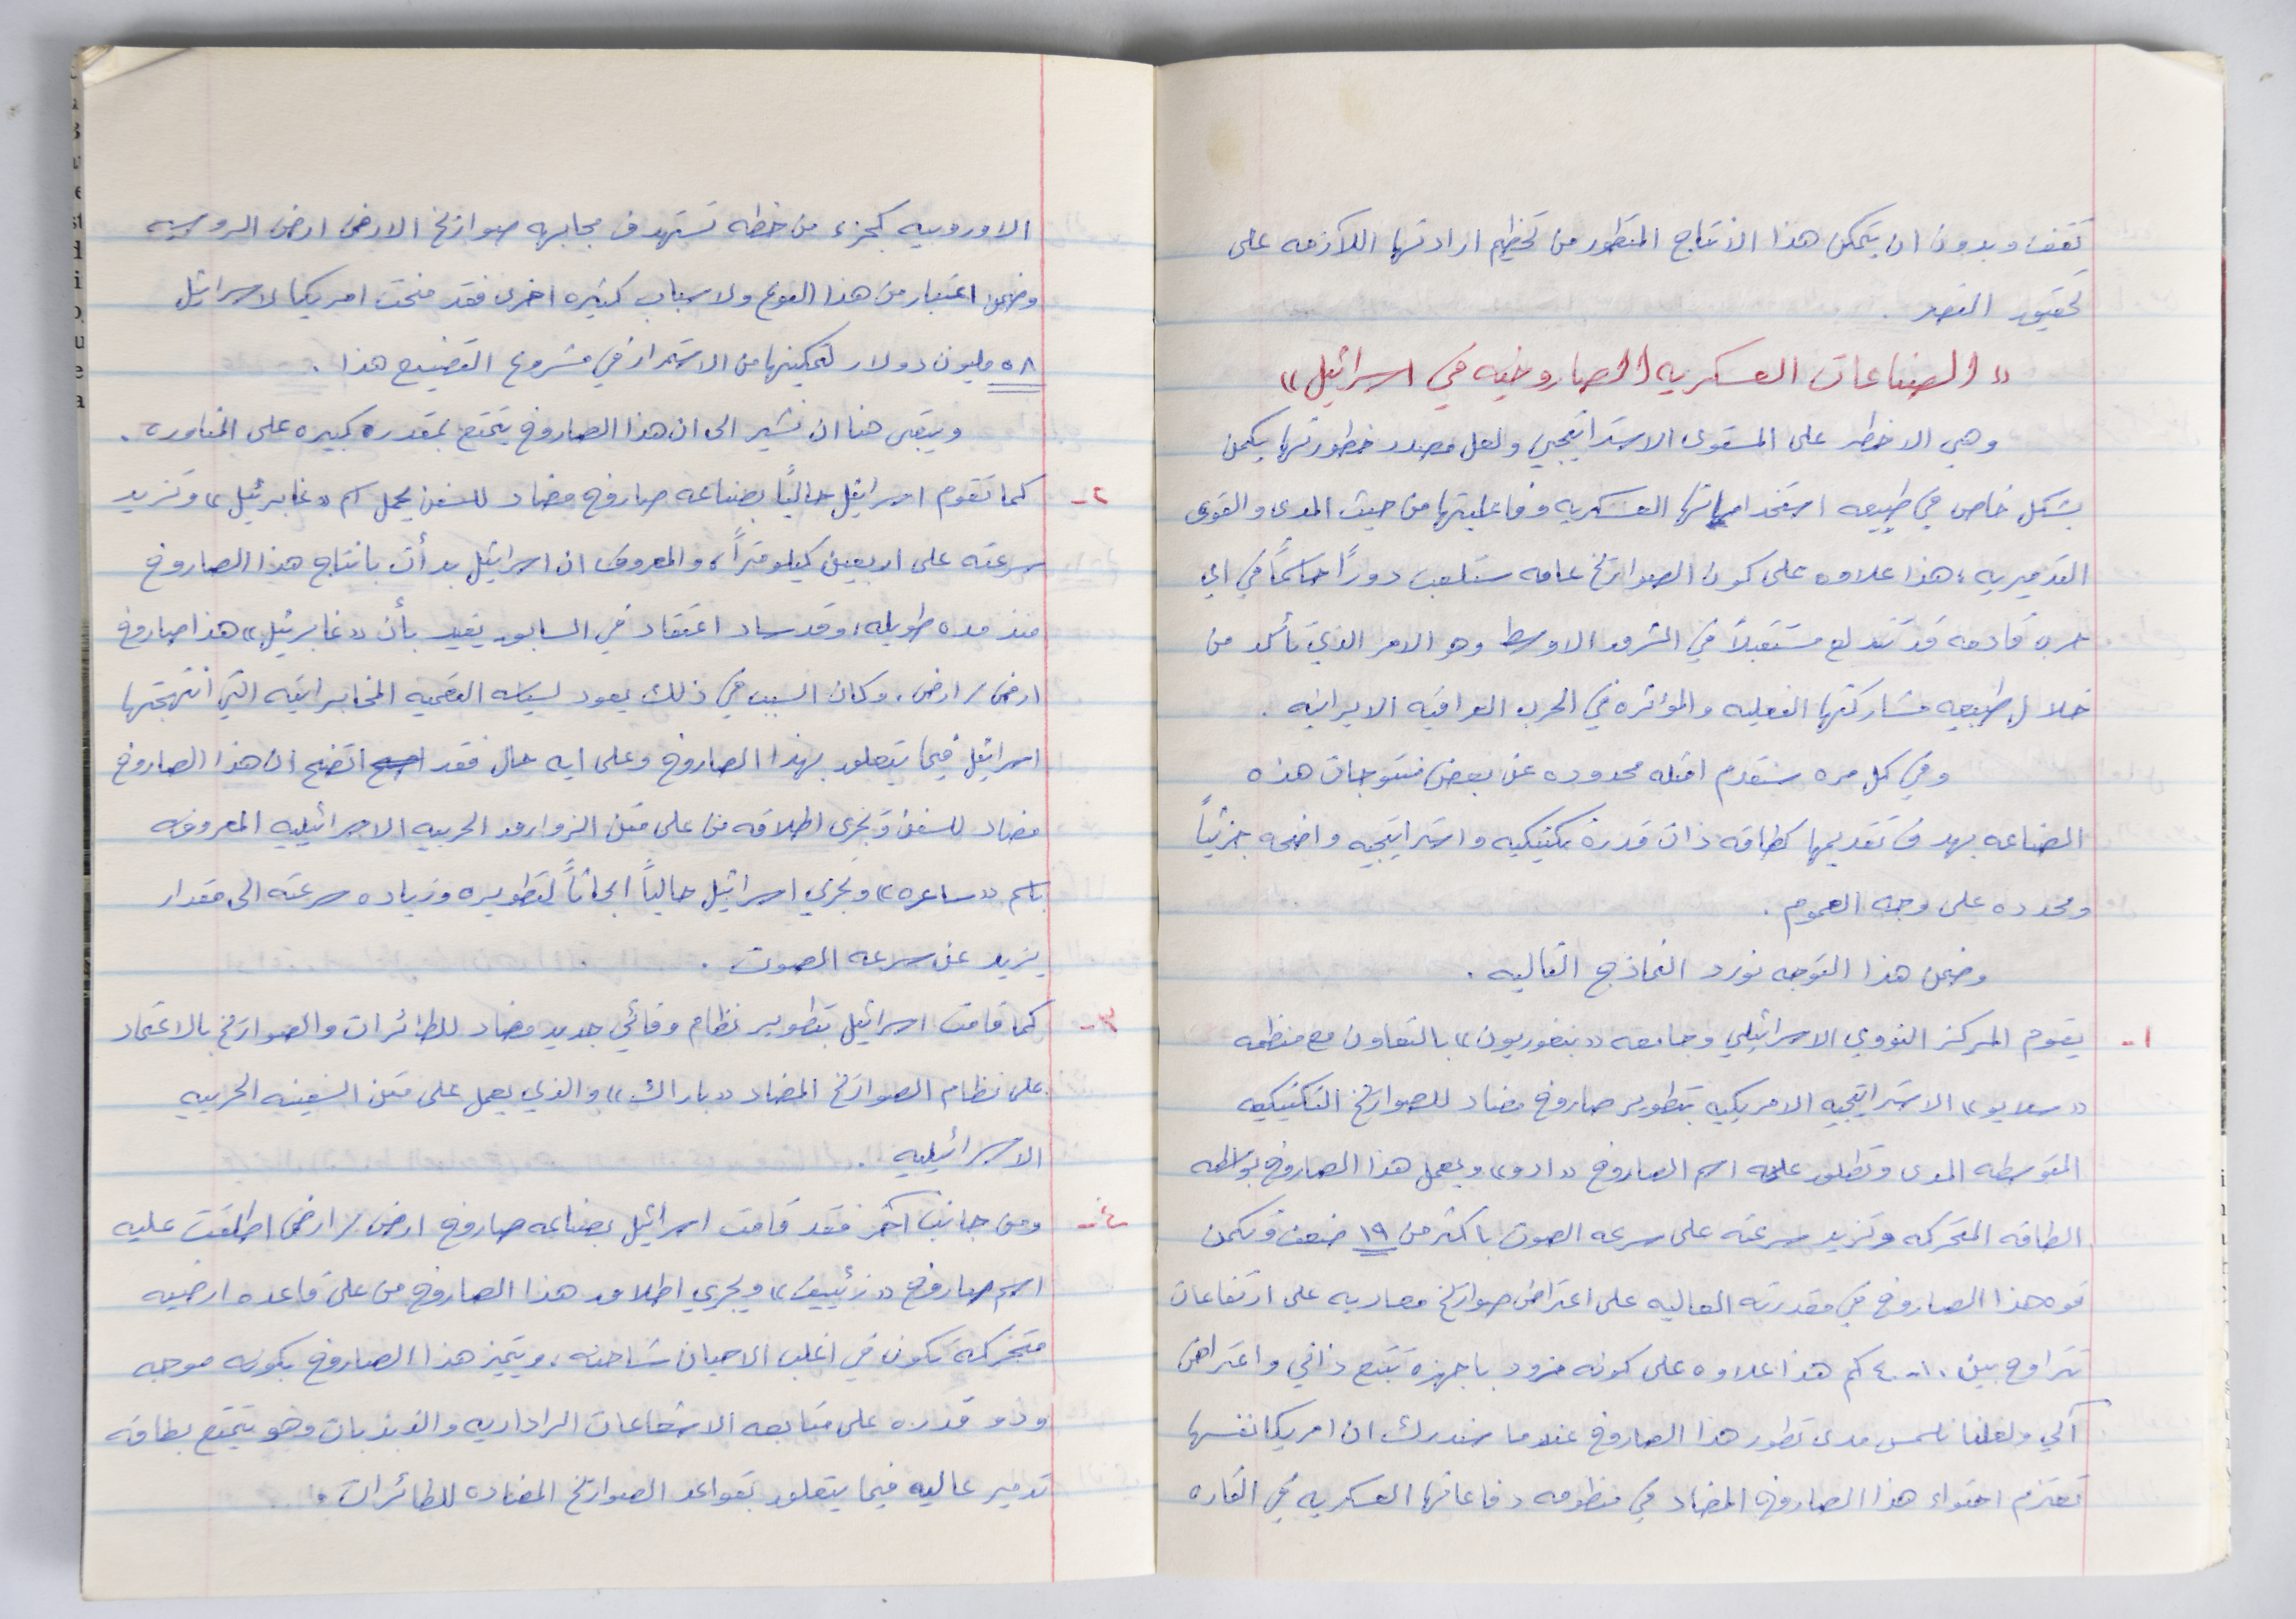 تقف وبدون ان يتمكن هذا الانتاج المتطور من تحطيم ارادتها اللازمه على
تحقيق النصر .
« الصناعات العسكريه الصاروخيه في اسرائيل »
وهي الاخطر على المستوى الاستراتيجي ولعل مصدر خطورتها يكمن
بشكل خاص في طبيعه استخداماتها العسكريه وفاعليتها من حيث المدى والقوى
التدميريه، هذا علاوه على كون الصواريخ عامه ستلعب دوراً حاسماً في اي
حرب قادمه قد تندلع مستقبلاً في الشرق الاوسط وهو الامر الذي تأكد من
خلال طبيعه مشاركتها الفعليه والمؤثره في الحرب العراقيه الايرانيه .
وفي كل مره سنقدم امثله محدوده عن بعض منتوجات هذه
الصناعه بهدف تقديمها كطاقه ذات قدرة تكتيكيه واستراتيجيه واضحه جزئياً
ومحدده على وجه العموم .
وضمن هذا التوجه نورد النماذج التاليه .
١- يقوم المركز النووي الاسرائيلي وجامعه « بنغوريون » بالتعاون مع منظمه
« سلايو » الاستراتيجيه الامريكيه بتطوير صاروخ مضاد للصواريخ التكتيكيه
المتوسطه المدى وتطلق عليه اسم الصاروخ « ادو » ويعمل هذا الصاروخ بواسطه
الطاقه المتحركه وتزيد سرعته على سرعه الصوت باكثر من ١٩ ضعف وتكمن
قوه هذا الصاروخ في مقدرته العاليه على اعتراض صواريخ معاديه على ارتفاعات
تتراوح بين ١٠-٤٠ كم هذا علاوه على كونه مزود باجهزة تتبع ذاتي واعتراض
آلي ولعلنا نلمس مدى تطور هذا الصاروخ عندما سندرك ان امريكا نفسها
تعتزم احتواء هذا الصاروخ المضاد في منظومه دفاعاتها العسكريه في القاره
الاوروبيه كجزء من خطه تستهدف مجابهه صواريخ الارض ارض الروسيه
وضمن اعتبار من هذا النوع ولاسباب كثيره اخرى فقد منحت امريكا لاسرائيل
٥٨ مليون دولار لتمكينها من الاستمرار في مشروع التصنيع هذا .
ويتبقى هنا ان نشير الى ان هذا الصاروخ يتمتع بمقدره كبيره على المناوره .
٢- كما تقوم اسرائيل حالياً بصناعه صاروخ مضاد للسفن يحمل اسم « غابرئيل » وتزيد
سرعته على اربعين كيلومتراً، والمعروف ان اسرائيل بدأت بانتاج هذا الصاروخ
منذ مده طويله، وقد ساد اعتقاد في السابق يفيد بأن « غابرئيل » هذا صاروخ
ارض/ارض، وكان السبب في ذلك يعود لسياسه التعميه المخابراتيه التي انتهجتها
اسرائيل فيما يتعلق بهذا الصاروخ وعلى ايه حال فقد اتضح ان هذا الصاروخ
مضاد للسفن وتجرى اطلاقه من على متن الزوارق الحربيه الاسرائيليه المعروفه
باسم « ساعره » وتجري اسرائيل حالياً ابحاثاً لتطويره وزياده سرعته الى مقدار
يزيد عن سرعه الصوت .
٣- كما قامت اسرائيل بتطوير نظام وقائي جديد مضاد للطائرات والصواريخ بالاعتماد
على نظام الصواريخ المضاد « باراك » والذي يعمل على متن السفينه الحربيه
الاسرائيليه .
٤- ومن جانب آخر فقد قامت اسرائيل بصناعه صاروخ ارض/ارض اطلقت عليه
اسم صاروخ « زئييف » ويجري اطلاق هذا الصاروخ من على قاعده ارضيه
متحركه تكون في اغلب الاحيان شاحنه، ويتميز هذا الصاروخ بكونه موجه
وذو قدره على متابعه الاشعاعات الراداريه والذبذبات وهو يتمتع بطاقه
تدمير عاليه فيما يتعلق بقواعد الصواريخ المضاده للطائرات .